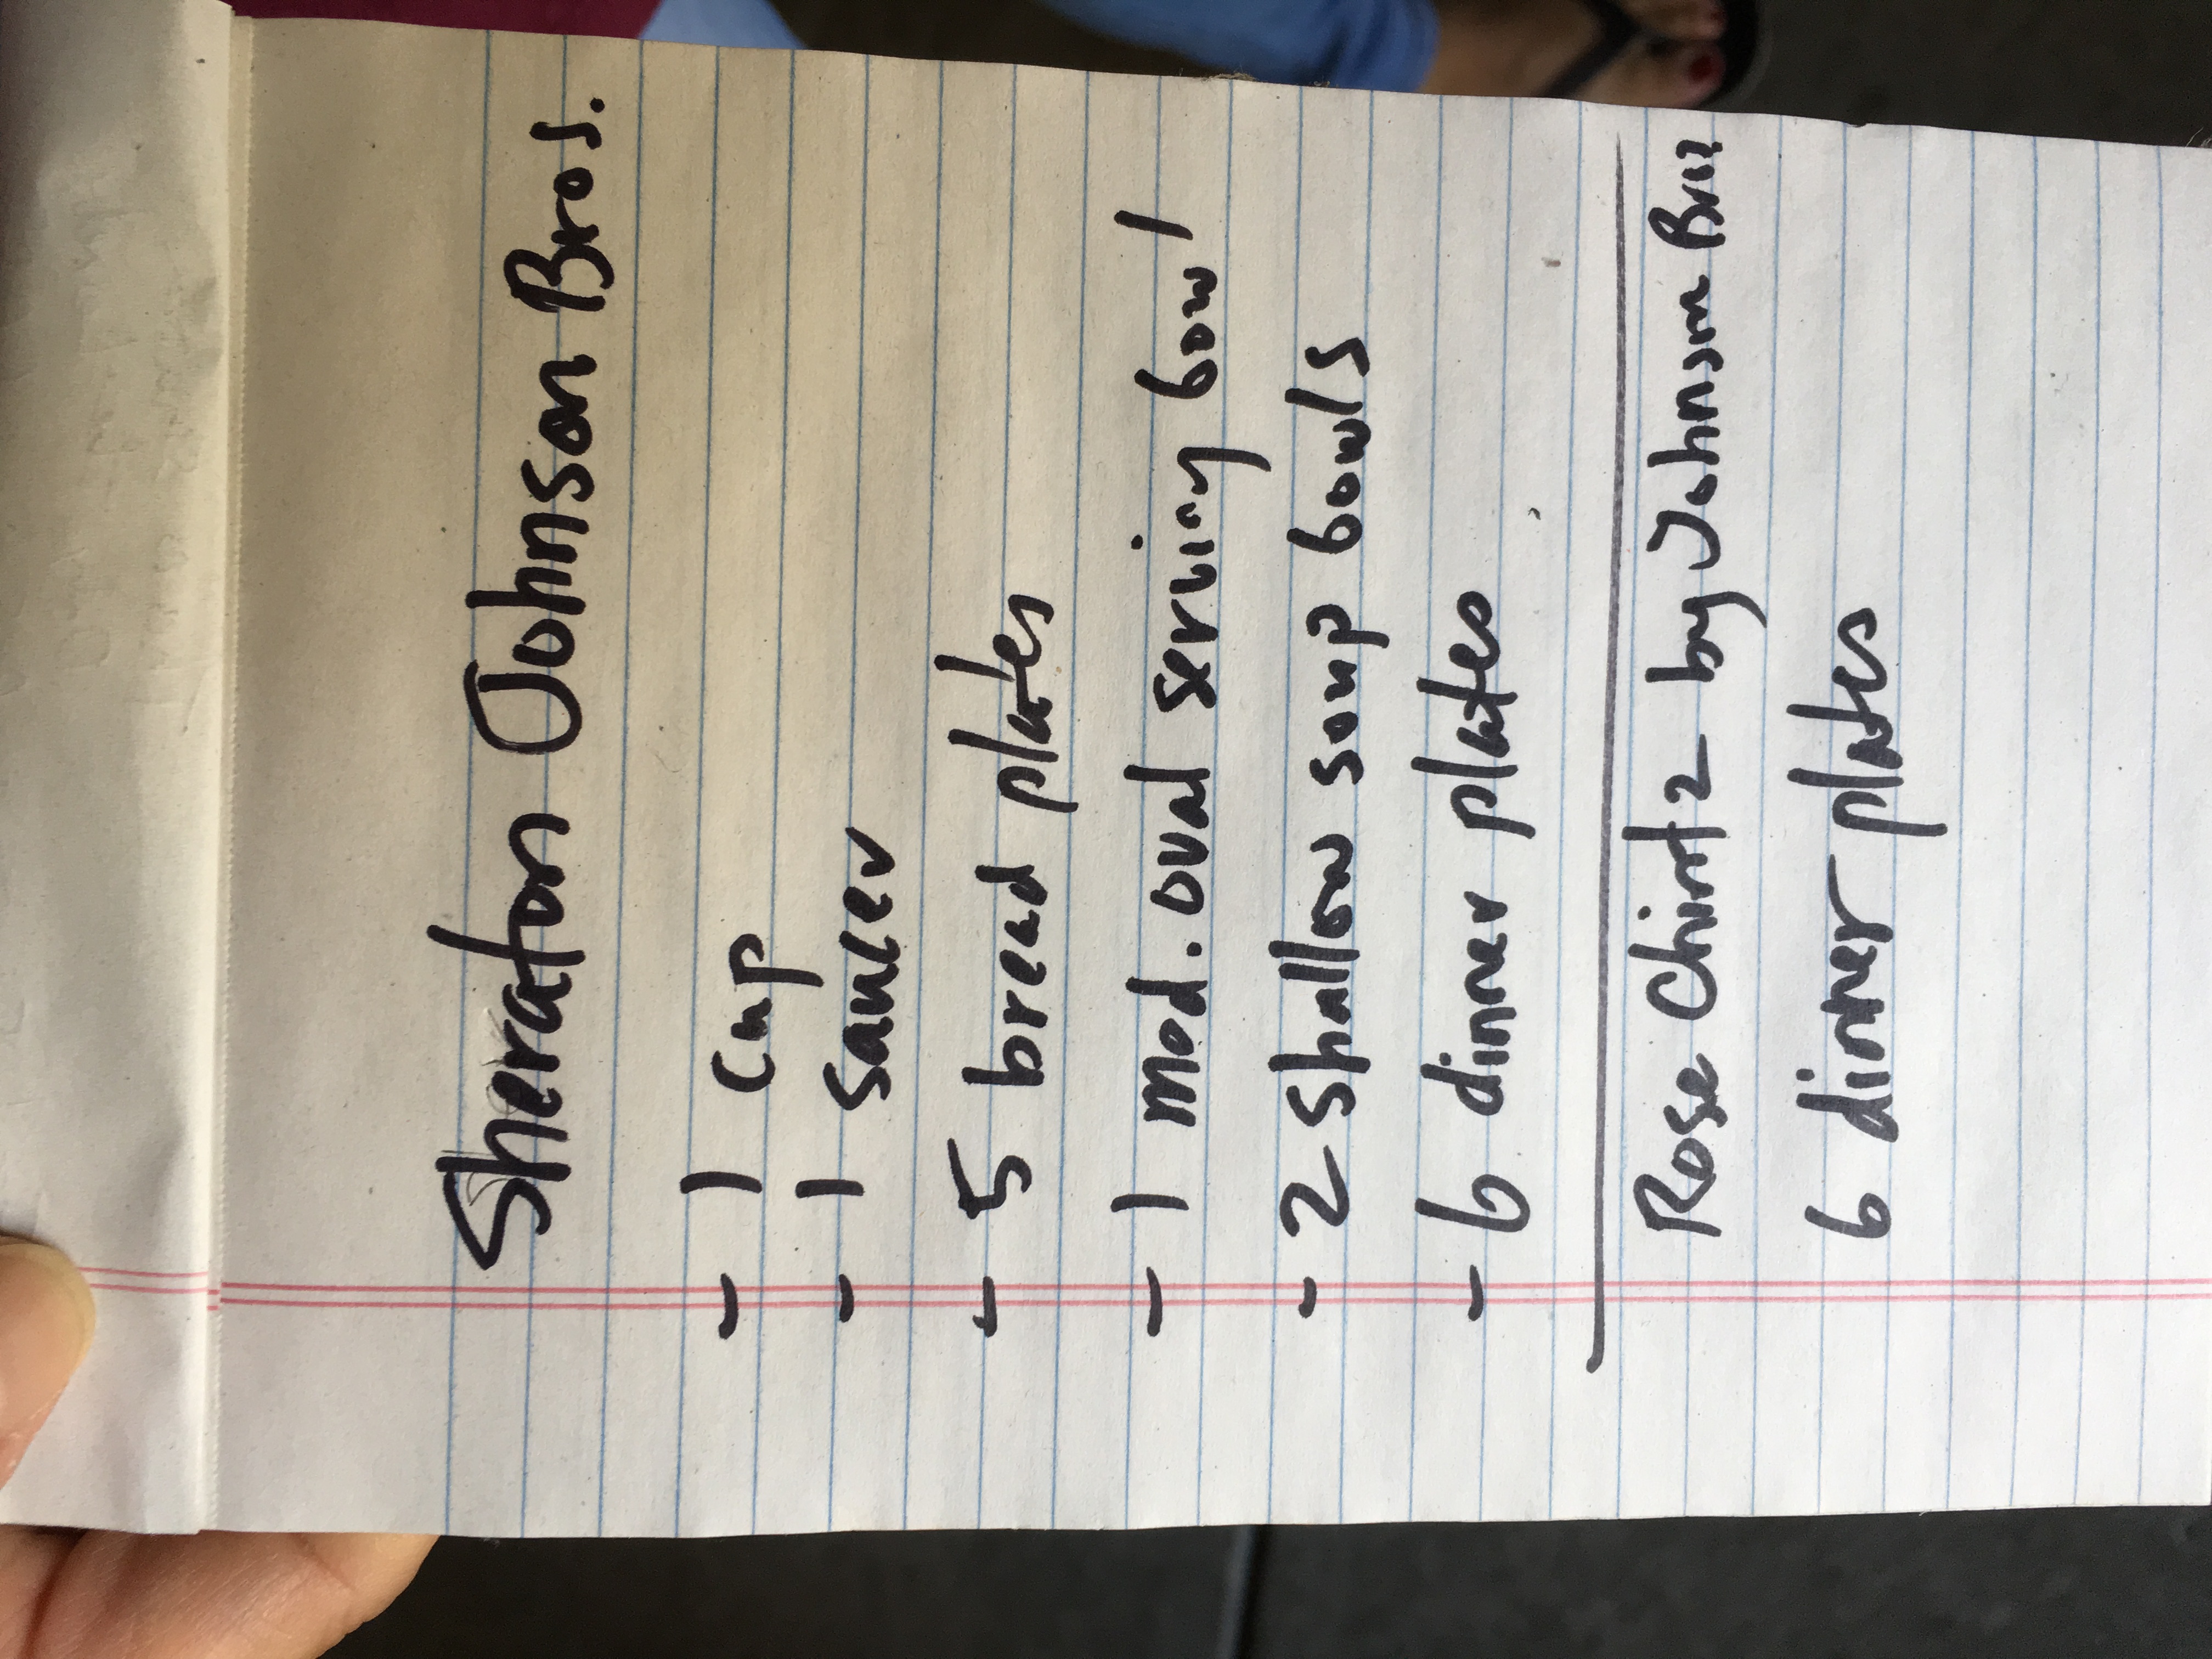 Sheraton Johnson Bros.
- 1 cup
- 1 saucer
- 5 bread plates
- 1 med. oval serving bowl
- 2 shallow soup bowls
- 6 dinner plates
Rose Chintz - by Johnson Bros
6 dinner plates